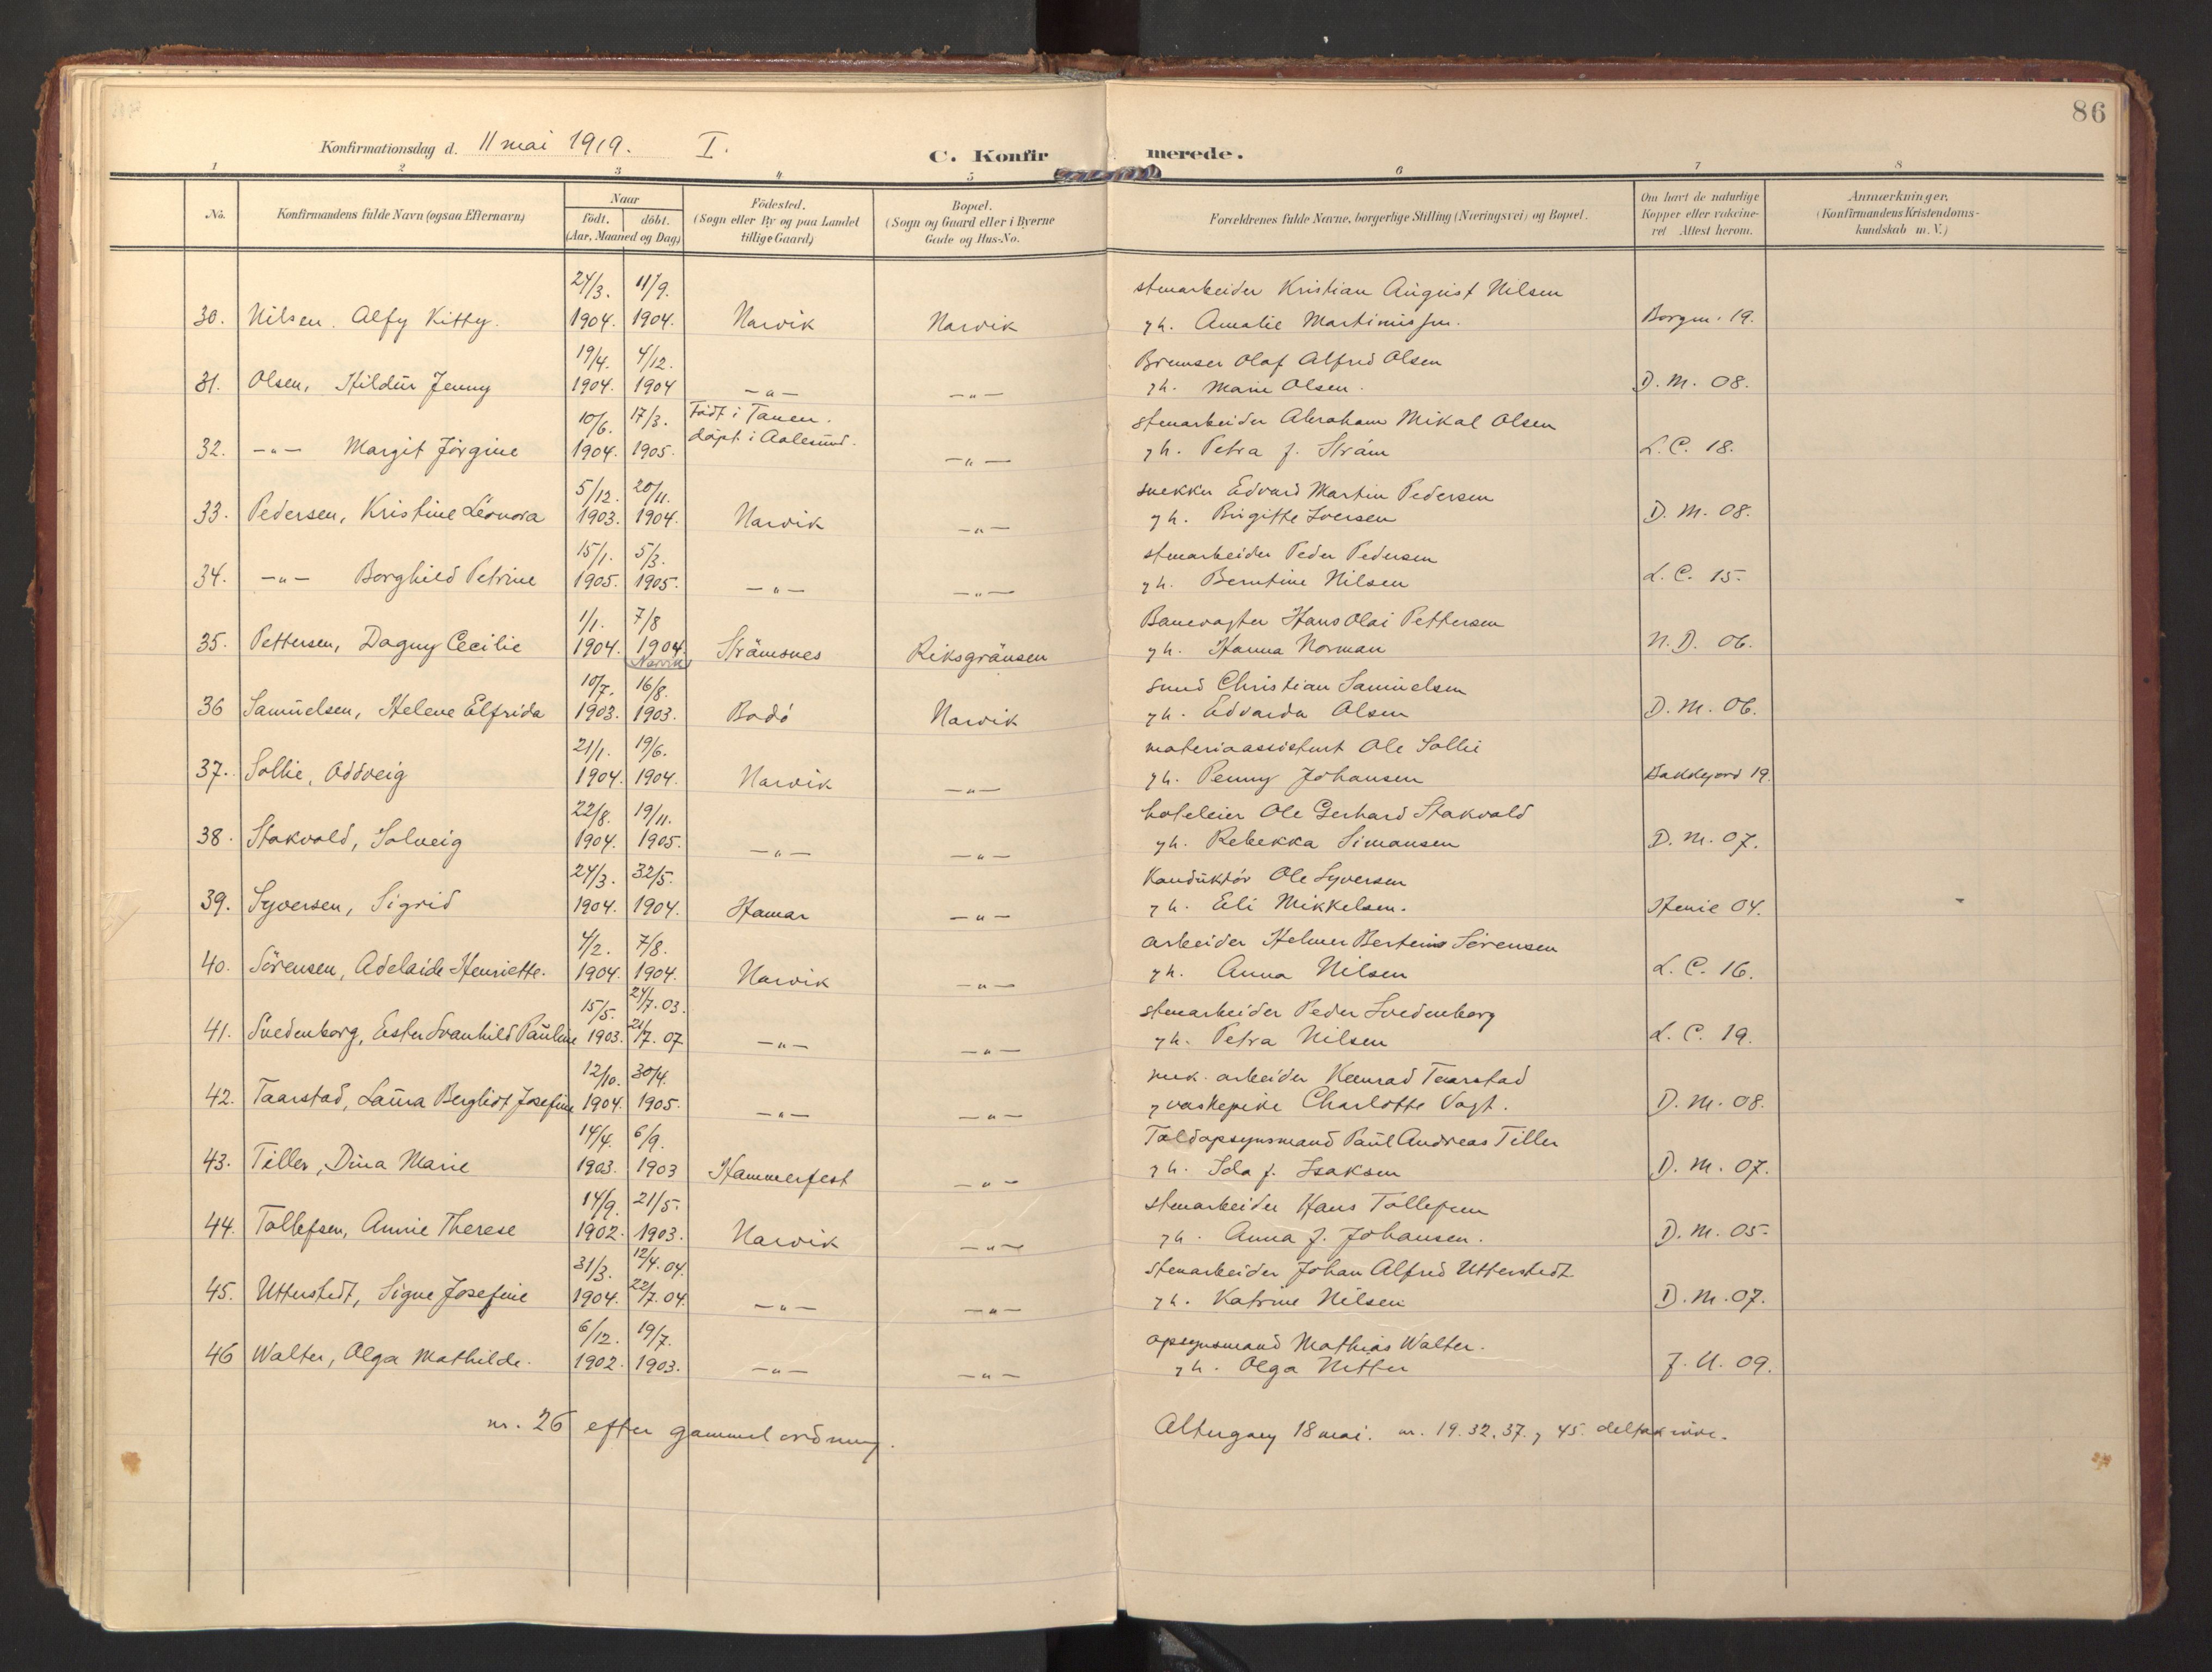 86
Konfirmationsdag d. 11 mai 1919. I.
C. Konfirmerede.
1 2 3 4 5 6 7 8
No.
Konfirmandens fulde Navn (ogsaa Efternavn)
Naar
födt. döbt.
(Aar, Maaned og Dag)
Födested.
(Sogn eller By og paa Landet
tillige Gaard)
Bopæl.
(Sogn og Gaard eller i Byerne
Gade og Hus-No.
Forældrenes fulde Navne, borgerlige Stilling (Næringsvei) og Bopæl.
Om havt de naturlige
Kopper eller vakcine-
ret Attest herom.
Anmærkninger,
(Konfirmandens Kristendoms-
kundskab m. V.)
24/3. 11/9. stenarbeider Kristian August Nilsen
30. Nilsen. Alfy Kitty. 1904. 1904. Narvik Narvik yh. Amalie Martinussen. Borgm. 19.
19/4. 4/12. Bremser Olaf Alfred Olsen
31. Olsen, Hildur Jenny 1904. 1904 —"— —"— yh. Marie Olsen. D. M. 08.
10/6. 17/3. Födt i Tanen. stenarbeider Abraham Mikal Olsen
döpt i Aalesund.
32. —"— Margit Jörgine 1904. 1905. —"— yh. Petra f. Ström L. C. 18.
5/12. 20/11. snekker Edvard Martin Pedersen
33. Pedersen, Kristine Leonora 1903. 1904. Narvik —"— yh. Birgitte Iversen D. M. 08.
15/1. 5/3. stenarbeider Peder Pedersen
34. —"— Borghild Petrine 1905. 1905. —"— —"— yh. Berntine Nilsen L. C. 15.
1/1. 7/8 Banevagter Hans Olai Pettersen
35. Pettersen, Dagny Cecilie 1904. 1904. Strömsnes Riksgränsen yh. Hanna Norman N. D. 06.
Narvik
10/7. 16/8. smed Christian Samuelsen
36 Samuelsen, Helene Elfrida 1903. 1903. Bodö Narvik yh. Edvarda Olsen D. M. 06.
21/1. 19/6. materiaassistent Ole Sollie
37. Sollie, Oddveig 1904. 1904. Narvik —"— yh. Penny Johansen Bakkejord 19.
22/8. 19/11. hoteleier Ole Gerhard Stakvold
38. Stakvold, Solveig 1904. 1905. —"— —"— yh. Rebekka Simonsen D. M. 07.
24/3. 32/5. Konduktör Ole Syversen
39. Syversen, Sigrid 1904. 1904. Hamar —"— yh. Eli Mikkelsen. Henie 04.
4/2. 7/8. arbeider Helmer Berteius Sörensen
40. Sörensen, Adelaide Henriette. 1904. 1904. Narvik —"— yh. Anna Nilsen L. C. 16.
15/5. 24/7. 03. stenarbeider Peder Svedenborg
41. Svedenborg, Ester Svanhild Pauline 1903. 21/7. 07 —"— —"— yh. Petra Nilsen L. C. 19.
12/10. 30/4. mek. arbeider Konrad Taarstad
42. Taarstad, Laura Bergliot Josefine 1904. 1905. —"— —"— y vaskepike Charlotte Vogt. D. M. 08.
14/4. 6/9. Toldopsynsmand Paul Andreas Tiller
43. Tiller, Dina Marie 1903. 1903 Hammerfest —"— yh. Ida f. Isaksen D. M. 07.
14/9. 21/5. stenarbeider Hans Tollefsen
44. Tollefsen, Annie Therese 1902. 1903. Narvik —"— yh. Anna f. Johansen. D. M. 05.
31/3. 12/4. 04. stenarbeider Johan Alfred Utterstedt
45. Utterstedt, Signe Josefine 1904. 22/7. 04. —"— —"— yh. Katrine Nilsen D. M. 07.
6/12. 19/7. opsynsmand Mathias Walter.
46 Walter, Olga Mathilde. 1902. 1903. —"— —"— yh. Olga Netter J. U. 09.
nr. 26 efter gammel ordning. Altergang 18 mai. nr. 19. 32. 37. y 45. deltok ikke.